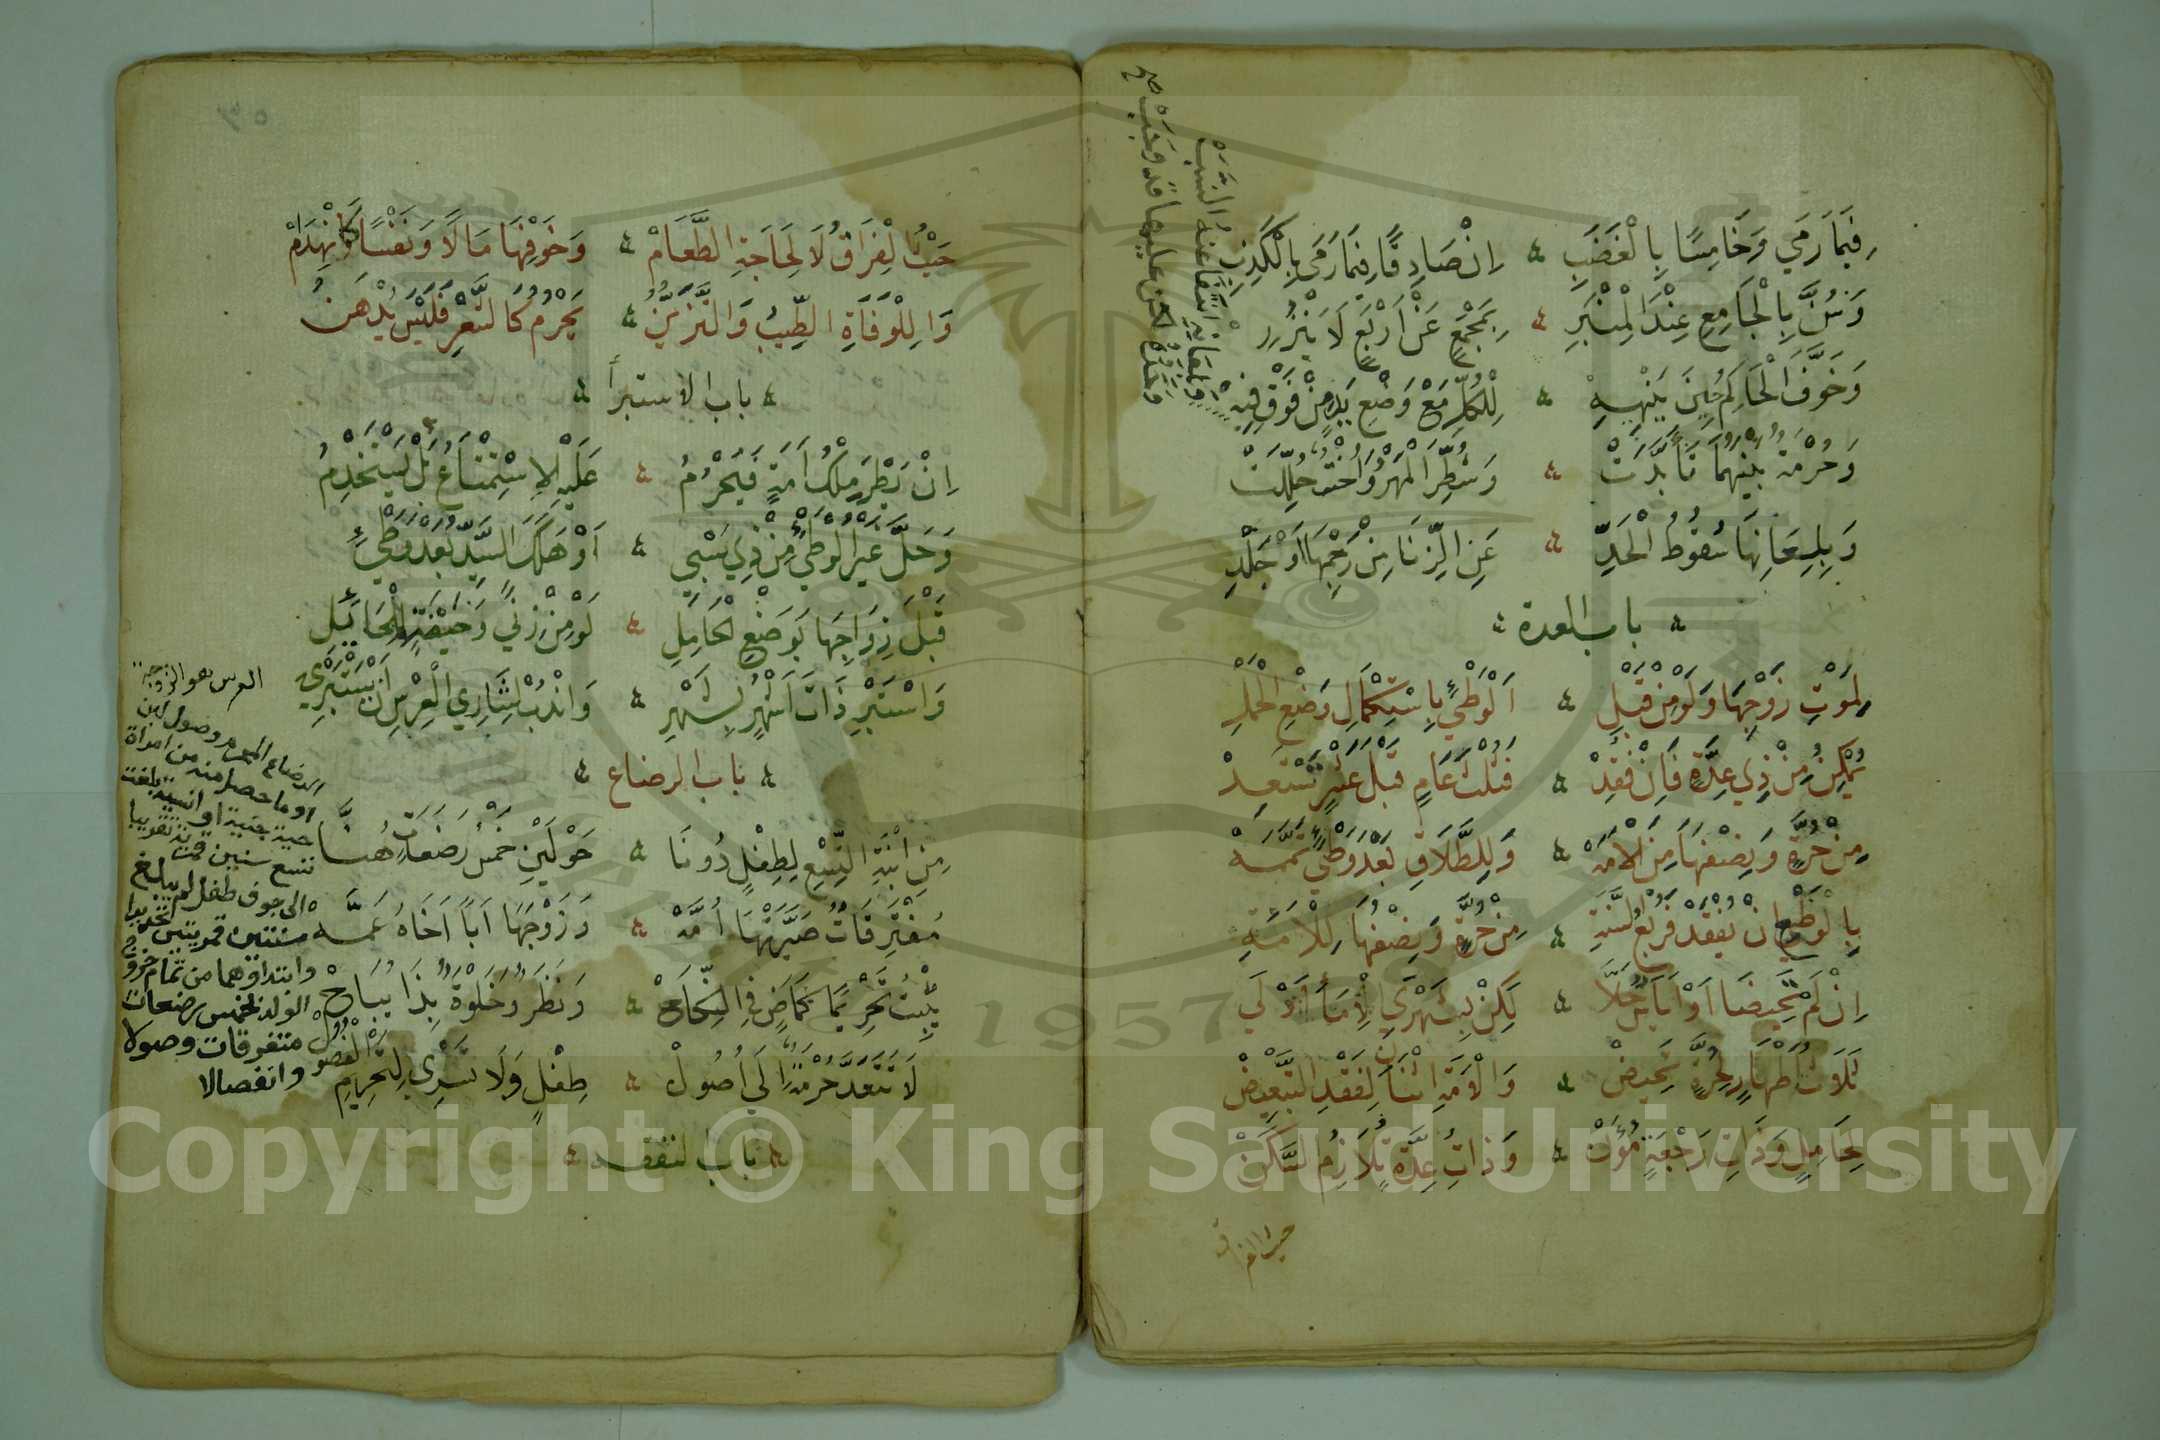 فِيمَا رَمَي وَخَامِسًا بِالْغَضَبِ ۞ اِنْ صَادِقًا فِيمَا رَمَى بِالْكَذِبِ
وَسُنَّ بِالْجَامِعِ عِنْدَ الْمِنْبَرِ ۞ بِمَجْمَعٍ عَنْ اَرْبَعٍ لَا يَنْزُرِ
وَخَوَّفَ الْحَاكِمُ حِينَ يَنْهِيهِ ۞ لِلْكُلِّ مَعْ وَضْعِ يَدٍ مِنْ فَوْقِ فِيهِ
وَحُرْمَةٌ بَيْنَهُمَا تَأَبَّدَتْ ۞ وَشُطِّرَ الْمَهْرُ وَاُخْتٌ حُلِّلَتْ
وَبِلِعَانِهَا سُقُوطُ الْحَدِّ ۞ عَنِ الزِّنَا مِنْ رَجْمِهَا اَوْ جَلْدِ
وبلعانه انتفا عنه النسب
وحده لكن عليها قد وجب صح
باب العدة
لِمَوْتِ زَوْجِهَا وَلَوْ مِنْ قَبْلِ ۞ اَلْوَطْيِ بِاسْتِكْمَالِ وَضْعِ الْحَمْلِ
يُمْكِنُ مِنْ ذِي عِدَّةٍ فَاِنْ فُقِدْ ۞ فَثُلْثَ عَامٍ قَبْلَ عَشْرٍ تَسْتَعِدْ
مِنْ حُرَّةٍ وَنِصْفَهَا مِنَ الْاَمَهْ ۞ وَلِلطَّلَاقِ بَعْدَ وَطْيٍ تَمَّمَهْ
بِالْوَضْعِ اِنْ يُفْقَدْ فَرُبْعُ السَّنَةِ ۞ مِنْ حُرَّةٍ وَنِصْفُهَا لِلْاَمَةِ
اِنْ لَمْ تَحِيضَا اَوْ اَيَاسٌ حَلَّا ۞ لَكِنْ بِشَهْرَيْ اَمَةٍ اَوْلَي
ثَلَاثُ اَطْهَارٍ لِحُرَّةٍ تَحِيضْ ۞ وَالْاَمَةِ اثْنَانِ لِفَقْدِ التَّبْعِيضْ
لِحَامِلٍ وَذَاتِ رَجْعَةٍ مُؤَنْ ۞ وَذَاتُ عِدَّةٍ تُلَازِمُ السَّكَنْ
حيث الفراق
حَيْثُ الْفِرَاقُ لَا لِحَاجَةِ الطَّعَامْ ۞ وَخَوْفِهَا مَالًا وَنَفْسًا كَانْهِدَامْ
وَالِلْوَفَاةِ الطِّيبُ وَالتَّزَيُّنُ ۞ يَحْرُمُ كَالشَّعْرِ فَلَيْسَ يُدْهَنُ
باب الاستبرأ
اِنْ يَطْرَ مِلْكُ اَمَةٍ فَيَحْرُمُ ۞ عَلَيْهِ الِاسْتِمْتَاعُ بَلْ يَسْتَخْدِمُ
وَحَلَّ غَيْرُ الْوَطْيِ مِنْ ذِي سَبْيِ ۞ اَوْ هَلَكَ السَّيِّدُ بَعْدَ وَطْيِ
قَبْلَ زِوَاجِهَا بِوَضْعِ الْحَامِلِ ۞ لَوْ مِنْ زِنًي وَحَيْضَةٍ لِلْحَائِلِ
وَاسْتَبْرِ ذَاتَ اَشْهُرٍ بِشَهْرِ ۞ وَانْدُبْ لِشَارِي الْعِرْسِ اَنْ يَسْتَبْرِي
باب الرضاع
مِنِ ابْنَةِ التِّسْعِ لِطِفْلٍ دُونَا ۞ حَوْلَيْنِ خَمْسُ رَضَعَاتٍ هُنَّا
مُفْتَرِقَاتٌ صَيَّرَتْهَا اُمَّهْ ۞ وَزَوْجَهَا اَبًا اَخَاهُ عَمَّهْ
يُثْبِتُ تَحْرِيمًا كَمَا مَضَى فِي النِّكَاحْ ۞ وَنَظَرٌ وَخَلْوَةٌ بِذَا يُبَاحْ
لَا تَتَعَدَّ حُرْمَةٌ اِلَي اُصُولْ ۞ طِفْلٍ وَلَا تَسْرِي لِتَحْرِيمِ الْفُصُولْ
باب النفقه
العرس هو الزوجة
الرضاع اسم وصول لبن
او ما حصل منه من امراة
حية جنية او انسية بلغت
تسع سنين قمرية تقريبا
الى جوف طفل لم يبلغ
سنتين قمريتين تقريبا
وابتداوهما من تمام خروج
الولد بخمس رضعات
متفرقات وصولا
وانفصالا
Copyright © King Saud University
1957